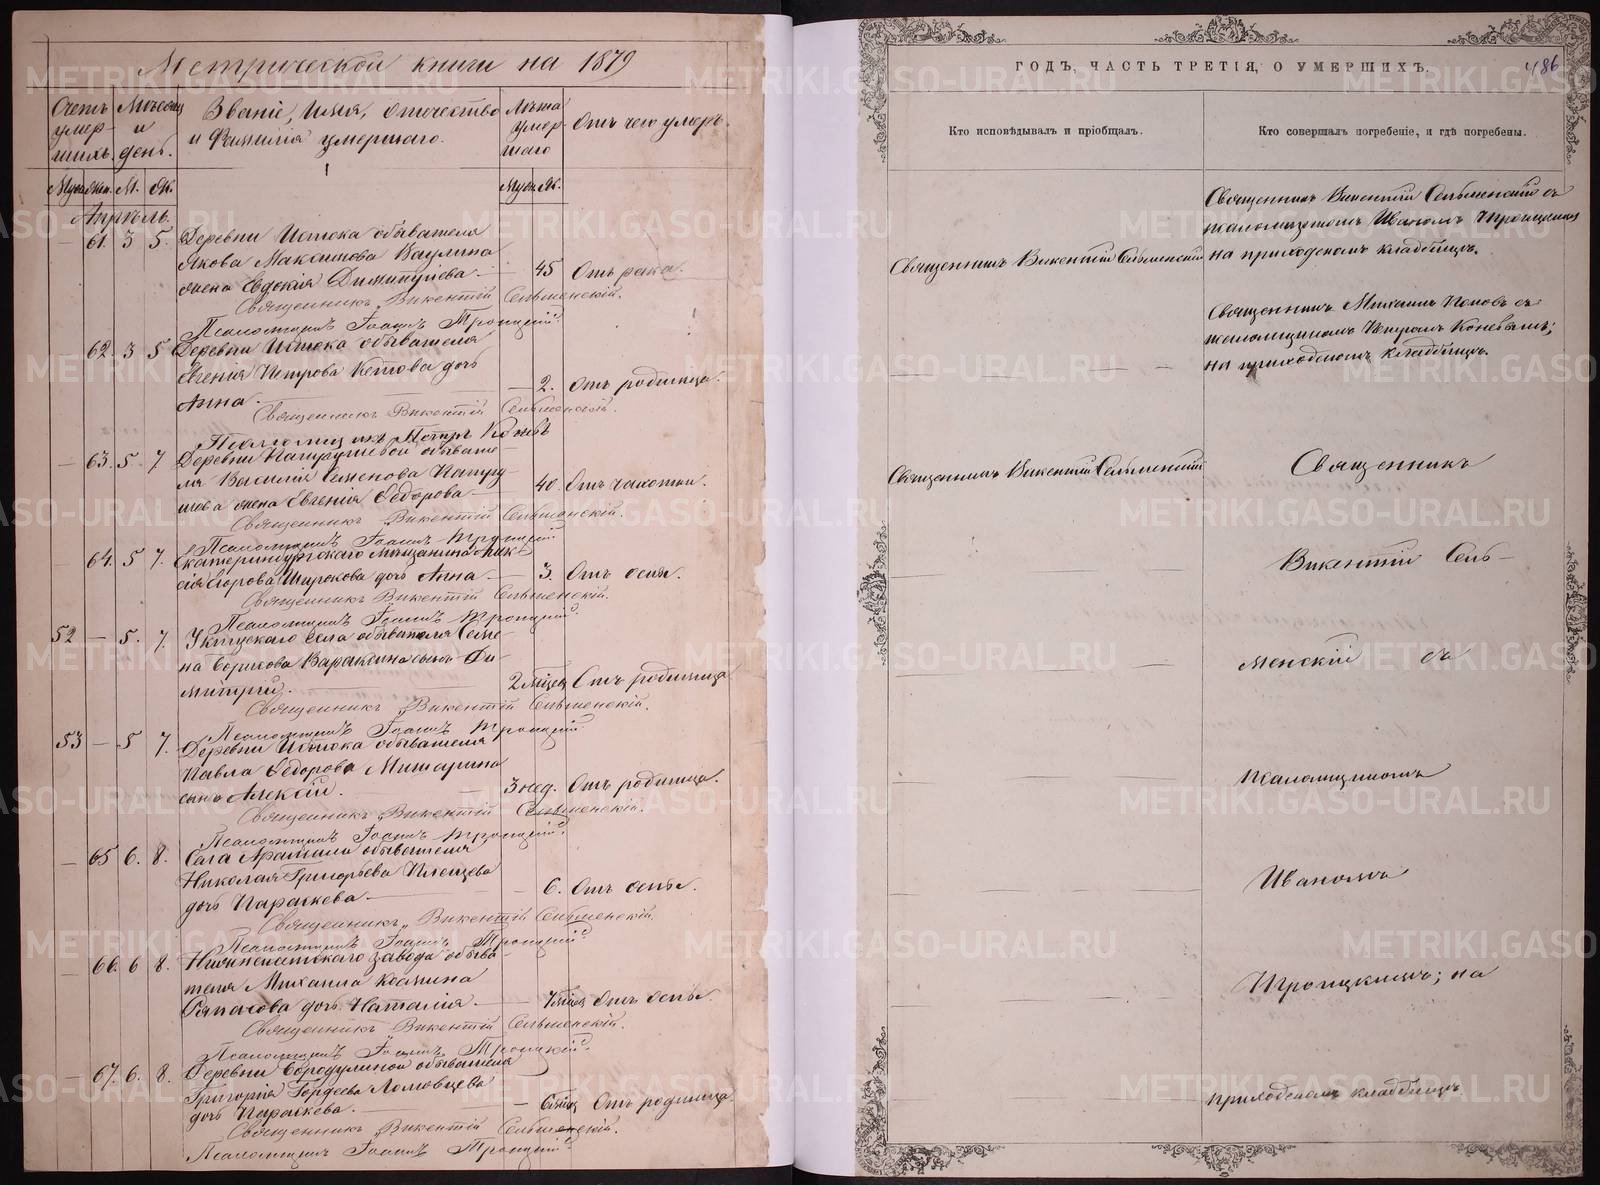 Метрической книги на 1879
Счетъ умер-шихъ. Мѣсяцъ и день. Званіе, имя, отчество и фамилія умершаго. Лѣта умер-шаго Отъ чего умеръ.
Муж. Жен. М. Дн. Муж. Ж.
Апрѣль.
— 61. 3 5. Деревни Истока обывателя
Якова Максимова Ваулина
жена Евдокія Димитріева. — 45 Отъ рака.
Священникъ Викентій Сельменскій.
Псаломщикъ Іоаннъ Троицкій.
— 62. 3 5 Деревни Истока обывателя
Евгенія Петрова Кетова дочь
Анна. — 2. Отъ родимца.
Священникъ Викентій Сельменскій.
Псаломщикъ Петръ Коневъ
— 63. 5 7 Деревни Патрушевой обывате-
ля Василія Семенова Патру-
шева жена Евгенія Ѳедорова — 40. Отъ чахотки.
Священникъ Викентій Сельменскій.
Псаломщикъ Іоаннъ Троицкій
— 64. 5 7. Екатеринбургскаго мѣщанина Алек-
сія Егорова Широкова дочь Анна. — 3. Отъ оспы.
Священникъ Викентій Сельменскій.
Псаломщикъ Іоаннъ Троицкій.
52 — 5. 7. Уктусскаго села обывателя Семе-
на Борисова Вараксина сынъ Ди-
митрій. 2 мѣсяц Отъ родимца
Священникъ Викентій Сельменскій.
Псаломщикъ Іоаннъ Троицкій
53 — 5 7. Деревни Истока обывателя
Павла Ѳедорова Мишарина
сынъ Алексій. — 3 нед. Отъ родимца.
Священникъ Викентій Сельменскій.
Псаломщикъ Іоаннъ Троицкій.
— 65 6. 8. Села Арамили обывателя
Николая Григорьева Плещева
дочь Параскева — 6. Отъ оспы.
Священникъ Викентій Сельменскій.
Псаломщикъ Іоаннъ Троицкій.
— 66. 6 8. Нижнеисетскаго завода обыва-
теля Михаила
дочь Наталія. — мѣсяц Отъ оспы.
Священникъ Викентій Сельменскій.
Псаломщикъ Іоаннъ Троицкій.
— 67. 6. 8. Деревни Бородулиной обывателя
Григорія Гордеева Ломовцева
дочь Параскева. — 6 мѣсяц Отъ родимца.
Священникъ Викентій Сельменскій.
Псаломщикъ Іоаннъ Троицкій.
ГОДЪ, ЧАСТЬ ТРЕТІЯ, О УМЕРШИХЪ. 486
Кто исповѣдывалъ и пріобщалъ. Кто совершалъ погребеніе, и гдѣ погребены.
Священникъ Викентій Сельменскій съ
псаломщикомъ Иваномъ Троицкимъ
Священникъ Викентій Сельменскій на приходскомъ кладбищѣ.
Священникъ Михаилъ Поповъ съ
псаломщикомъ Петромъ Коневымъ;
на приходскомъ кладбищѣ.
Священникъ Викентій Сельменскій Священникъ
Викентій Сель-
менскій съ
псаломщикомъ
Иваномъ
Троицкимъ; на
приходскомъ кладбищѣ.
METRIKI.GASO-URAL.RU